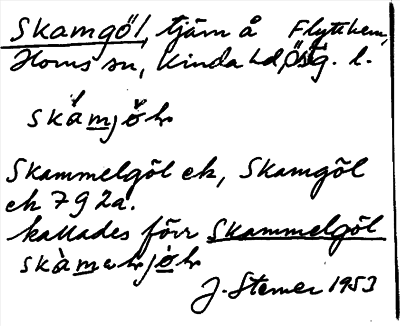 Skamgöl, tjärn å Flytthem,
Horns sn, Kinda hd, Östg. l.
Skammelgöl ek, Skamgöl
ek 792a.
kallades förr Skammelgöl
J. Stemer 1953